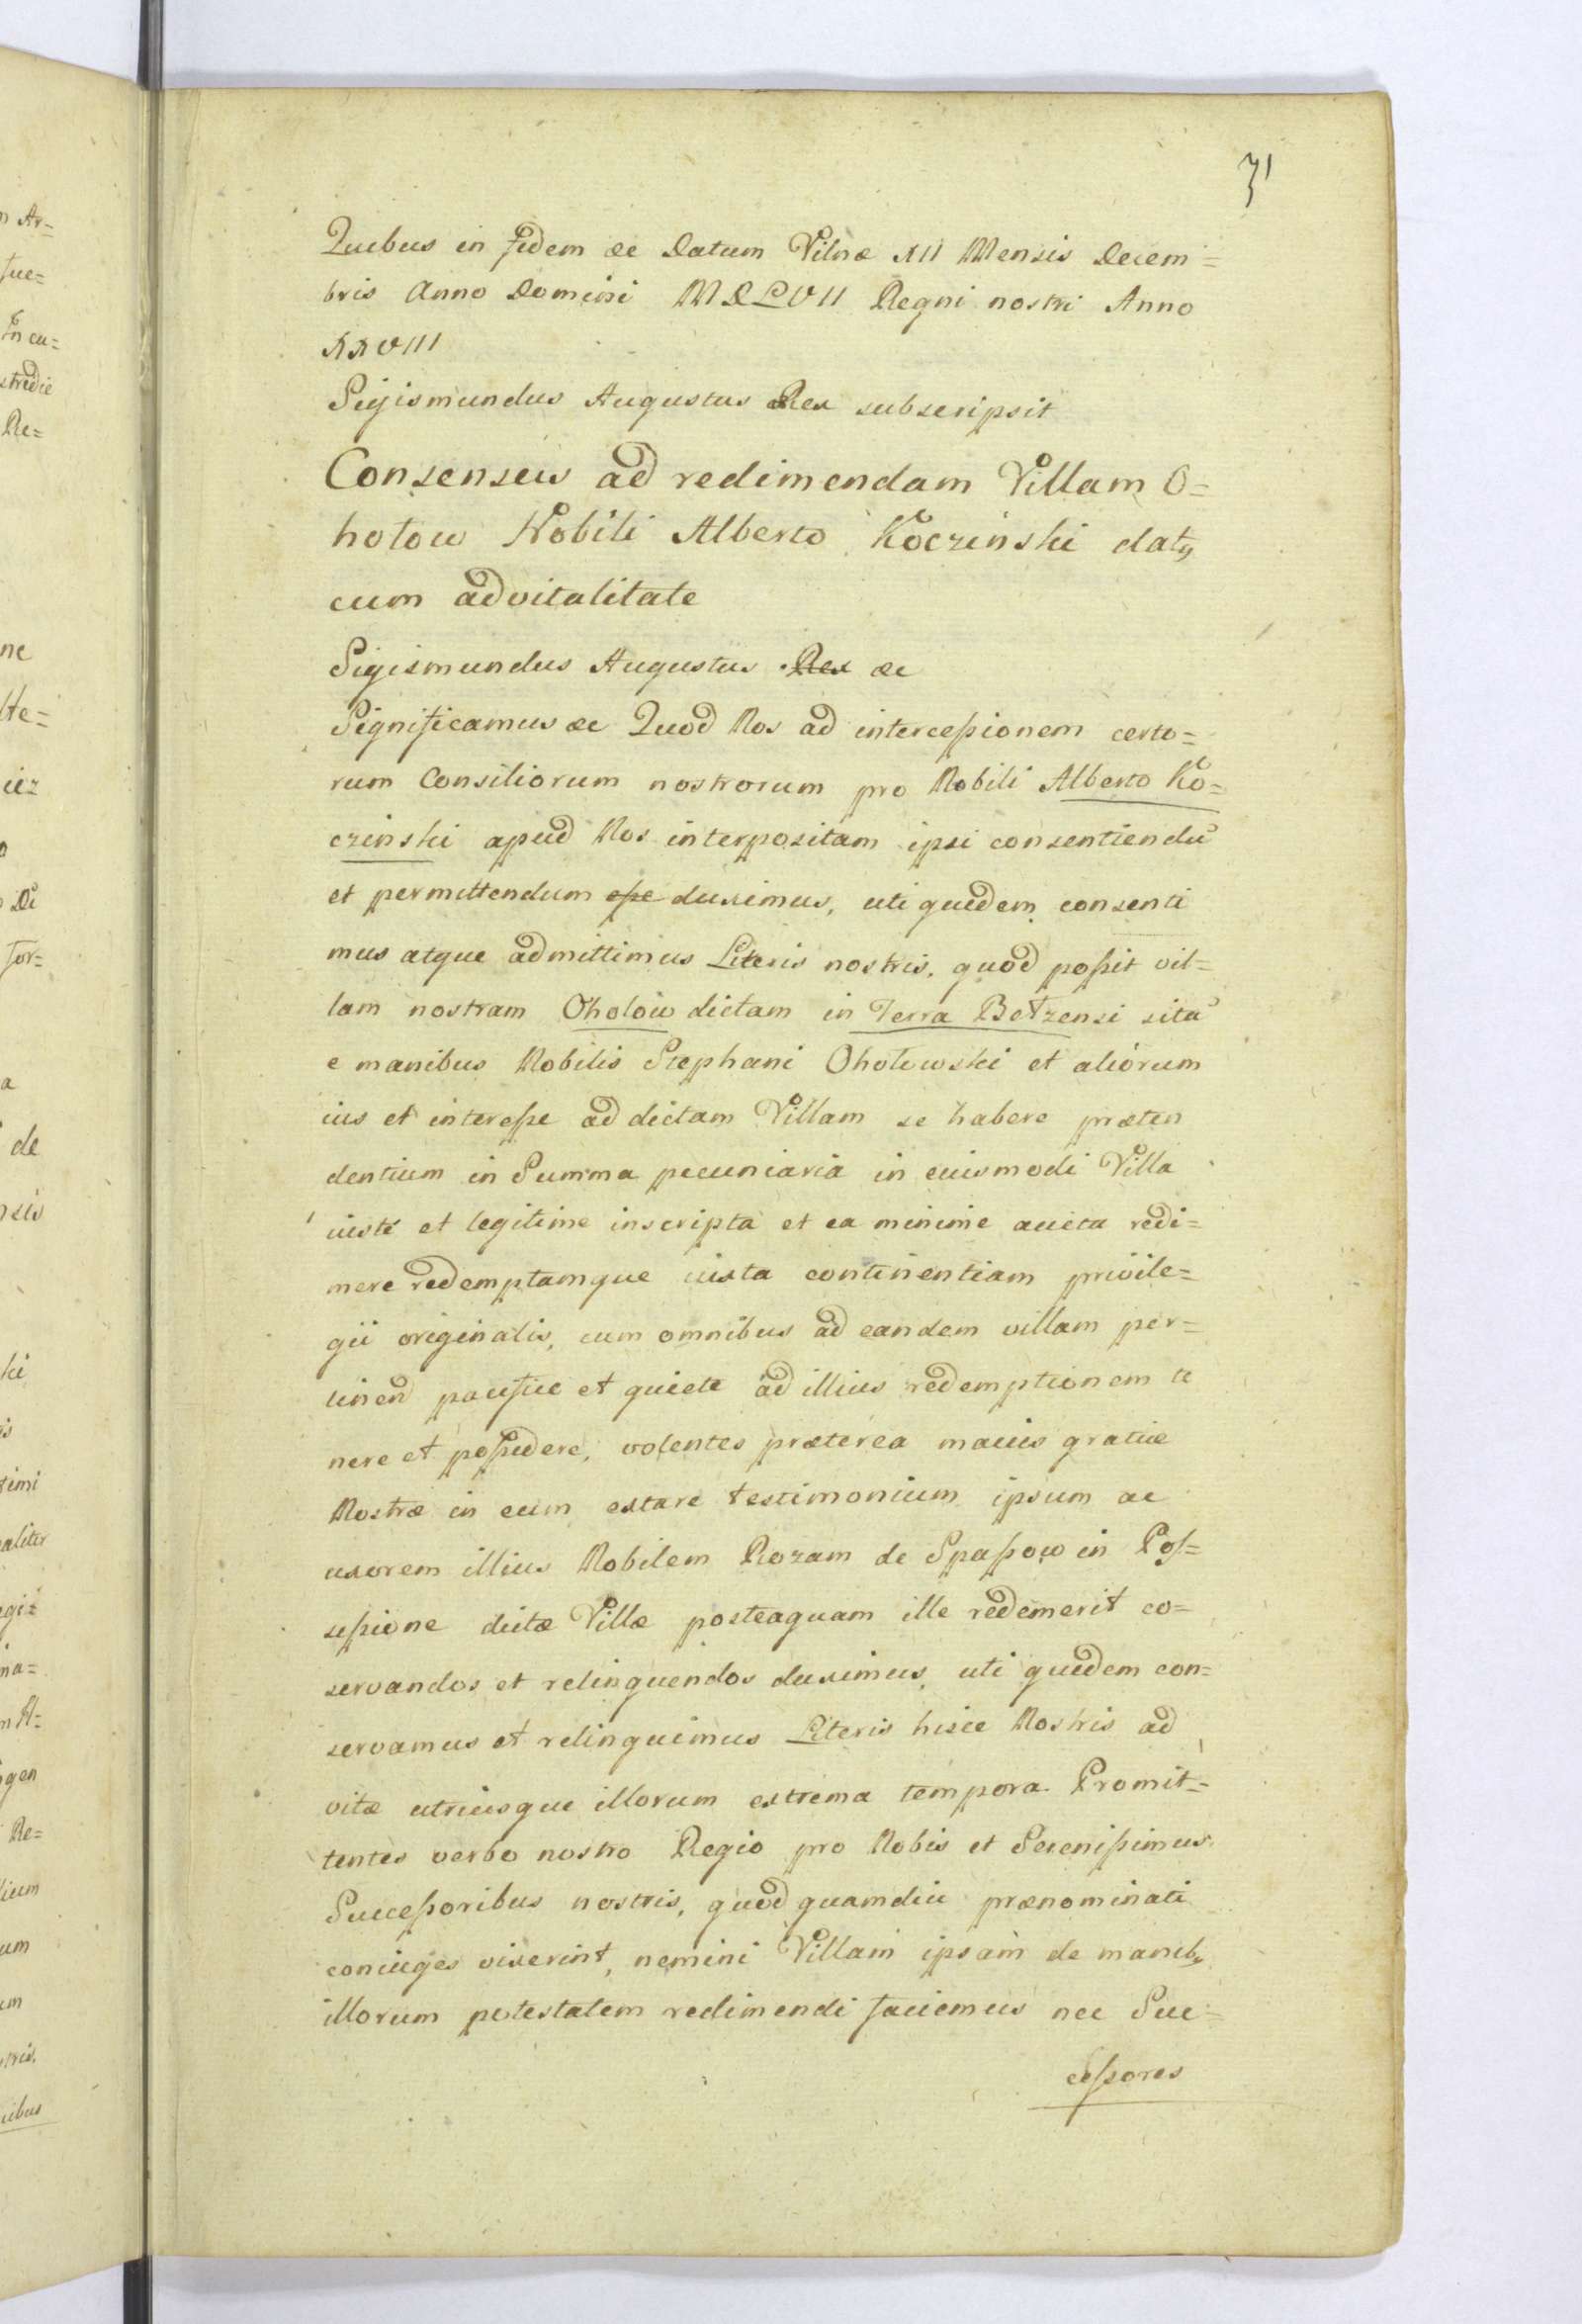 31
Quibus in fidem &c Datum Vilnæ XII Mensis Decem=
bris Anno Domini MDLVII Regni nostri Anno
XXVIII
Sigismundus Augustus Rex subscripsit
Consensus ad redimendam Villam O=
hołow Nobili Alberto Koczinski datq
cum advitalitate
Sigismundus Augustus Rex &c
Significamus &c Quod Nos ad intercessionem certo=
rum Consiliorum nostrorum pro Nobili Alberto Ko=
czinski apud Nos interpositam ipsi consentiendū
et permittendum esse duximus, uti quidem consenti
mus atque admittimus Literis nostris, quod possit vil=
lam nostram Ohołow dictam in Terra Betzensi sitā
e manibus Nobilis Stephani Ohołowski et aliorum
ius et interesse ad dictam Villam se habere præten
dentium in Summa pecuniaria in euismodi Villa
iuste et legitime inscripta et ea minime aucta redi=
mere redemptamque iuxta continentiam privile=
gii originalis, cum omnibus ad eandem villam per=
tinend pacifice et quiete ad illius redemptionem te
nere et possidere, volentes præterea maius gratiæ
Nostræ in eum extare testimonium ipsum ac
uxorem illius Nobilem Rozam de Spassow in Pos=
sessione dictæ Villæ posteaquam ille redemerit co=
servandos et relinquendos duximus, uti quidem con=
servamus et relinquimus Literis hisce Nostris ad
vitæ utriusque illorum extrema tempora. Promit=
tentes verbo nostro Regio pro Nobis et Serenissimus
Successoribus nostris, quod quamdiu prænominati
coniuges vixerint, nemini Villam ipsam de manibq
illorum potestatem redimendi faciemus nec Suc=
cessores